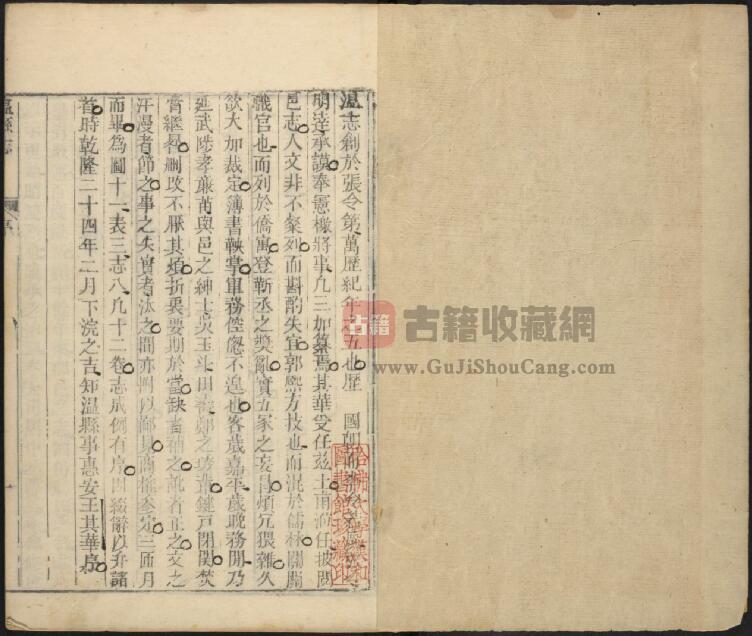 溫志創於張令第萬歷紀年之五也歷 國朝
明達承謨奉憲檄將事凡三加纂焉其華受任茲土甫涖任披閱
邑志人文非不粲列而斟酌失宜郭熙方技也而混於儒林關關
職官也而列於僑寓登靳丞之獎亂實五家之妄冒煩冗猥雜久
欲大加裁定簿書鞅掌軍務倥傯不遑也客歲嘉平歲晚務閒乃
延武陟孝廉荊與邑之紳士吳玉斗田 鄭之 鍵戶閉關焚
膏繼晷刪改不厭其煩折衷要期於當缺者補之訛者正之文之
汗漫者節之事之失實者汰之間亦附以鄙見商榷參定三匝月
而畢為圖十一表三志八凡十二卷志成例有序因綴辭以弁諸
首時乾隆二十四年二月下浣之吉知溫縣事惠安王其華序
溫縣志
序
一
哈佛大學漢和圖書館珍藏印
古籍
古籍收藏網
www.GuJiShouCang.com